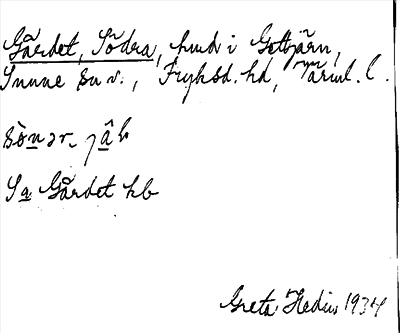 Gårdet, Södra, hmd i Gettjärn,
Sunne sn., Fryksd. hd, Värml. l.
Sa Gårdet kb
Greta Hedin 1934